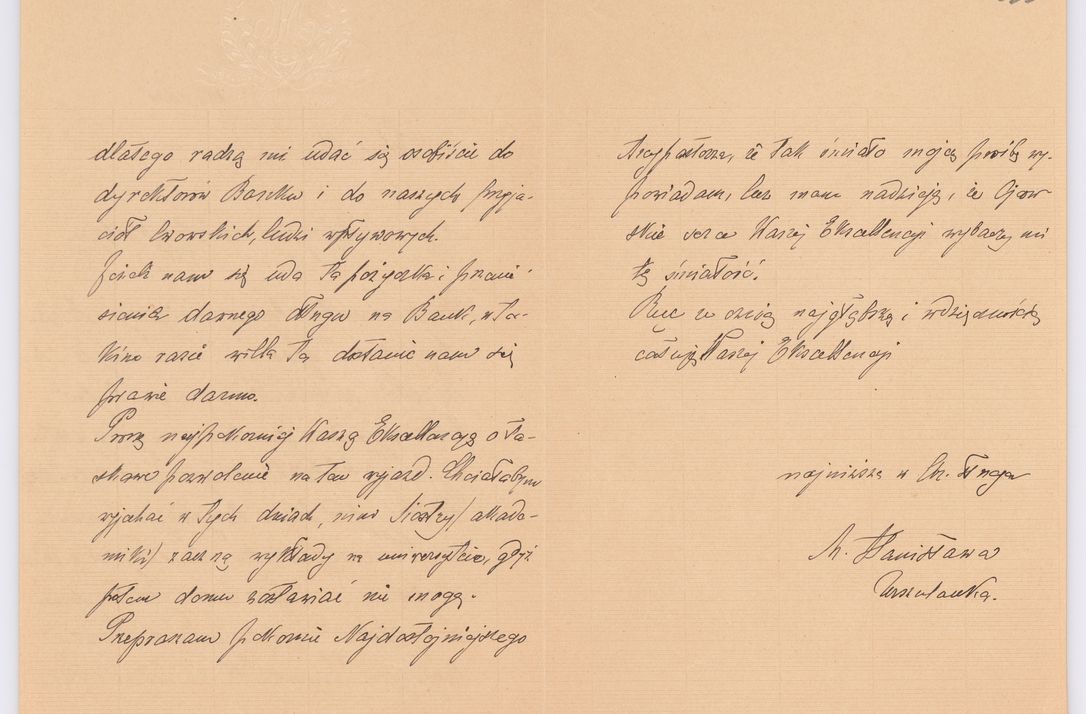 dlatego radzą mi udać się osobiście do
dyrektorów Banku i do naszych przyja-
ciół lwowskich, ludzi wpływowych.
Jeżeli nam się uda ta pożyczka i przenie-
sienie dawnego długu na Bank, w ta-
kim razie willa ta dostanie nam się
prawie darmo.
Proszę najpokorniej Waszą Ekscellencyę o ła-
skawe pozwolenie na ten wyjazd. Chciałabym
wyjechać w tych dniach, nim Siostry (akade-
miki) zaczną wykłady na uniwersytecie, gdyż
potem domu zostawiać nie mogę.
Przepraszam pokornie Najdostojniejszego
Arcypasterza, że tak śmiało moją prośbę wy-
powiadam, lecz mam nadzieję, że Ojcow-
skie serce Waszej Ekscellencyi wybaczy mi
tę śmiałość.
Ręce z czcią najgłębszą i wdzięcznością
całuję Waszej Ekscellencyi
najniższa w Chr. sługa
M. Stanisława
Urszulanka.